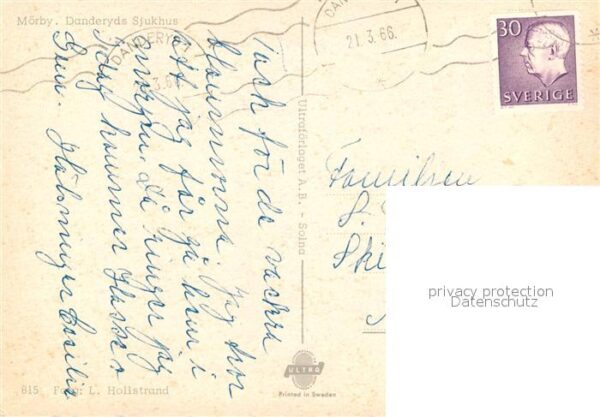 Mörby. Danderyds Sjukhus
DANDERYD
21.3.66.
30
SVERIGE
Tack för de vackra
blommorna. Jag tror
att jag får gå hem i
morgon. Då ringer jag
Idag kommer Hasse o
Hälsningar Cecilia
Ultraförlaget A.B. - Solna
Familjen
S.
Ski
privacy protection
Datenschutz
ULTRA
Printed in Sweden
815 Foto: L. Hollstrand